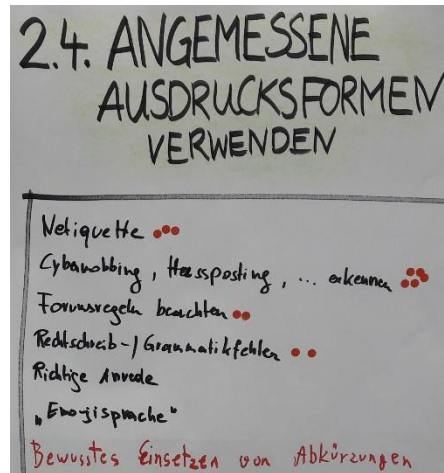 2.4. ANGEMESSENE
AUSDRUCKSFORMEN
VERWENDEN
Netiquette
Cybermobbing, Hassposting, ... erkennen
Forumsregeln beachten
Rechtschreib-/Grammatikfehler
Richtige Anrede
"Emojisprache"
Bewusstes Einsetzen von Abkürzungen